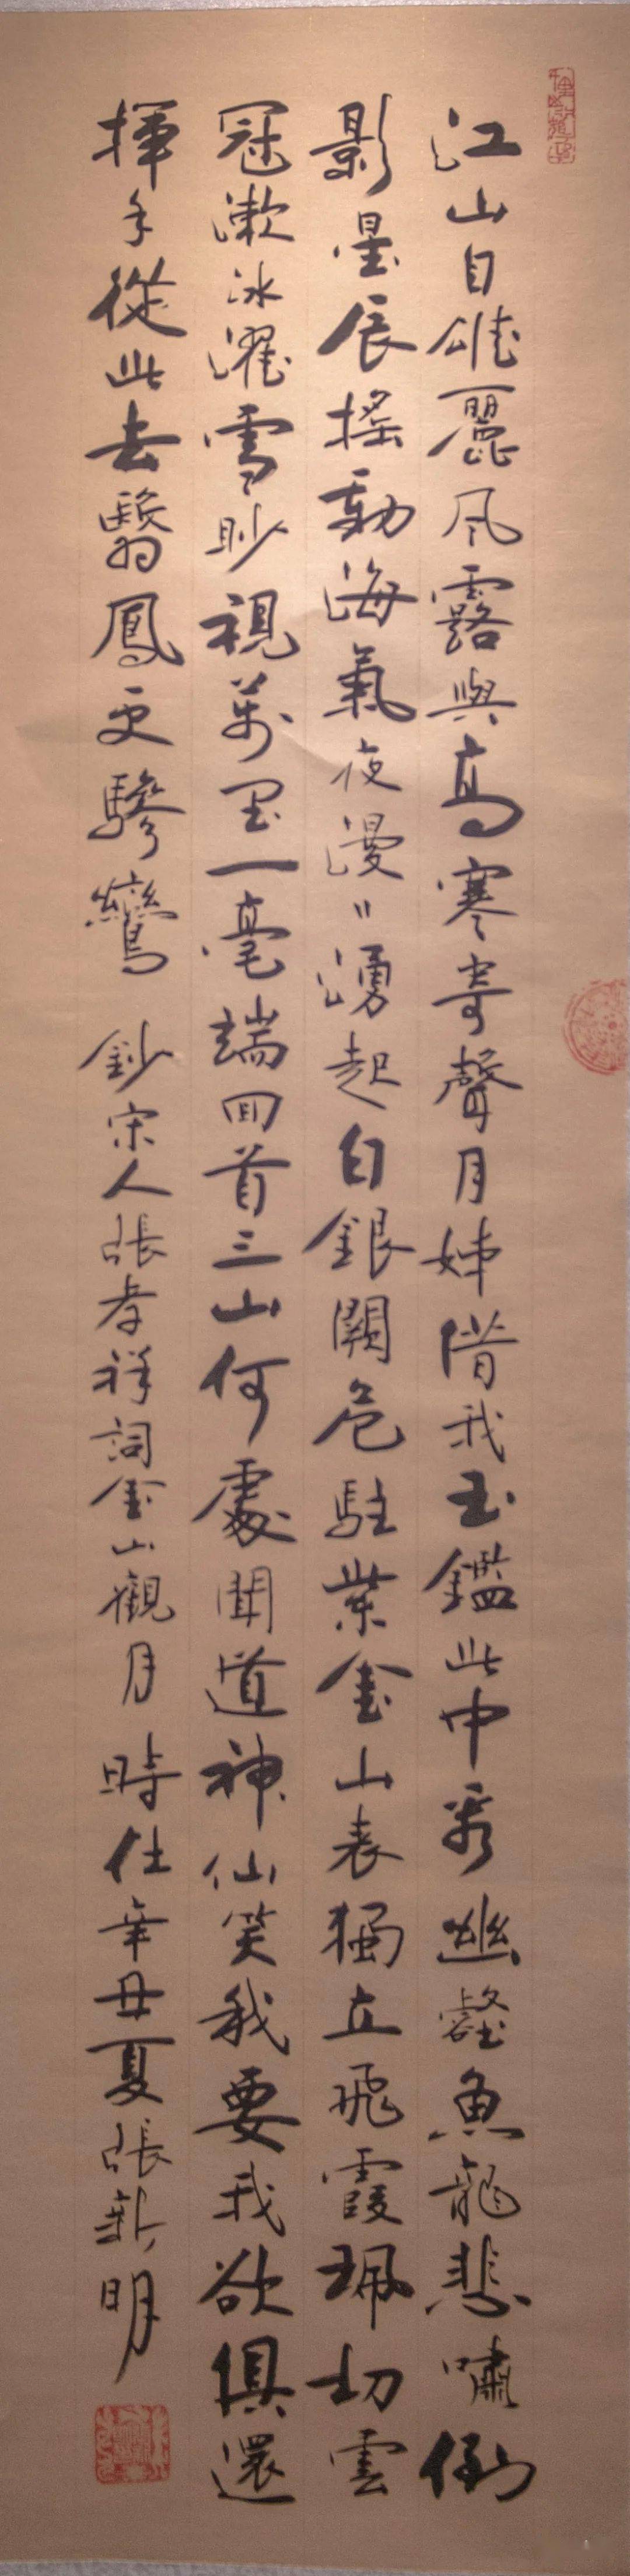 江山自雄麗風露與高寒寄聲月姊借我玉鑑此中看幽壑魚龍悲嘯倒
影星辰搖動海氣夜漫〃湧起白銀闕危駐紫金山表獨立飛霞珮切雲
冠漱冰濯雪眇視萬里一毫端回首三山何處聞道神仙笑我要我欲俱還
揮手從此去翳鳳更驂鸞 鈔宋人張孝祥詞金山觀月 時在辛丑夏張新明